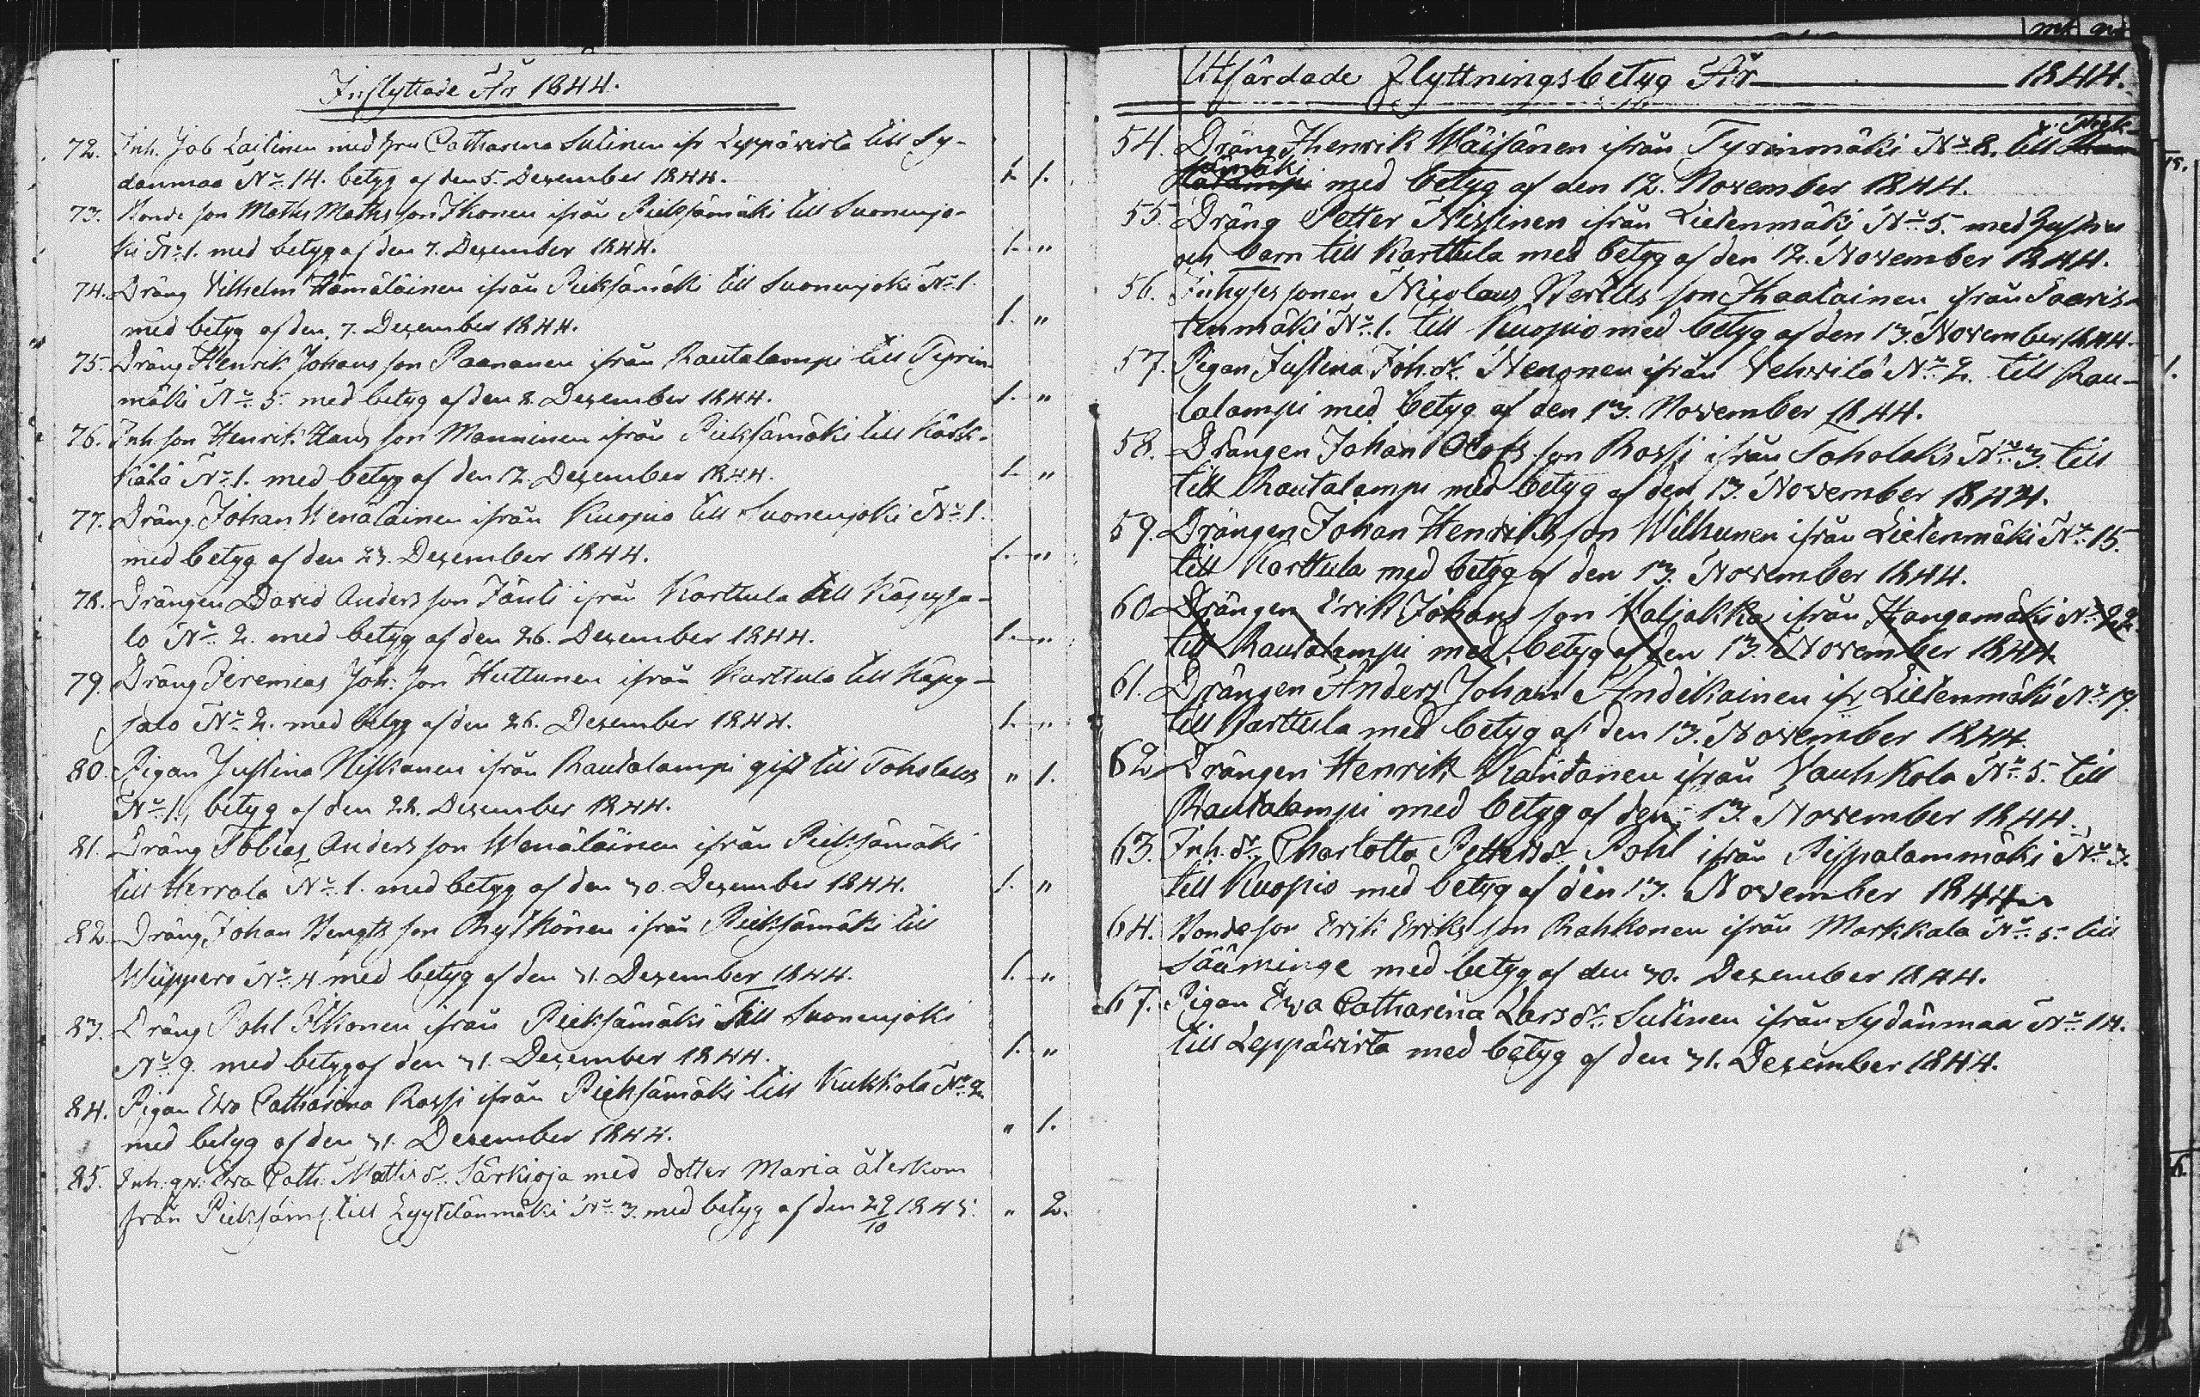 Inflyttade År 1844.
72. Inh. Job Laitinen med hru Catharina Sutinen ifr Leppävirta till Sy-
danmaa No 14. betyg af den 5. Dezember 1844. 1. 1.
73. Bonde son Mats Mathsson Ikonen ifrån Pieksämäki till Suonenjo-
ki No 1. med betyg af den 7. Dezember 1844. 1. "
74. Dräng Vilhelm Hämäläinen ifrån Pieksämäki till Suonenjoki No 1.
med betyg af den 7. Dezember 1844. 1. "
75. Dräng Henrik Johansson Paananen ifrån Rautalampi till Tyrin-
mäki No 5. med betyg af den 8. Dezember 1844. 1. "
76. Inh son Henrik Hansson Manninen ifrån Pieksämäki till Kärk-
käla No 1. med betyg af den 12. Dezember 1844. 1. "
77. Dräng Johan Wenäläinen ifrån Kuopio till Suonenjoki No 1.
med betyg af den 23. Dezember 1844. 1. "
78. Drängen David Andersson Jänti ifrån Karttula till Käpysa-
lo No 2. med betyg af den 26. Dezember 1844. 1. "
79. Dräng Jeremias Joh. son Huttunen ifrån Karttula till Käpy-
salo No 2. med betyg af den 26. Dezember 1844. 1. "
80. Pigan Justina Niskanen ifrån Rautalampi gift till Toholaks " 1.
No 1., betyg af den 28. Dezember 1844.
81. Dräng Tobias Andersson Wenäläinen ifrån Pieksämäki
till Herrala No 1. med betyg af den 30. Dezember 1844. 1. "
82. Dräng Johan Bengtsson Rytkönen ifrån Pieksämäki till
Wiippero No 4 med betyg af den 31. Dezember 1844. 1. "
83. Dräng Pohl Ikonen ifrån Pieksämäki Till Suonenjoki
No 9. med betyg af den 31. Dezember 1844. 1. "
84. Pigan Eva Catharina Rossi ifrån Pieksämäki till Kukkola No 2.
med betyg af den 31. Dezember 1844. " 1.
85. Inh. gv: Eva Cath: Matsdr. Särkioja med dotter Maria återkom
från Pieksäm. till Lyytilänmäki No 3. med betyg af den 29/10 1845. " 2.
Utfärdade flyttningsbetyg År 1844.
54. Dräng Henrik Wäisänen ifrån Tyrinmäki No 8. till Piek-
sämäki med betyg af den 12. November 1844.
55. Dräng Petter Nissinen ifrån Lietenmäki No 5. med hustru
och barn till Karttula med betyg af den 12. November 1844.
56. Inhyses sonen Nicolaus Bertils son Thaalainen ifrån Saaris-
tenmäki No 1. till Kuopio med betyg af den 13. November 1844.
57. Pigan Justina Joh.dr Nenonen ifrån Vehvilä No 2. till Rau-
talampi med betyg af den 13. November 1844.
58. Drängen Johan Olofs son Rossi ifrån Toholaks No 3. till
till Rautalampi med betyg af den 13. November 1844.
59. Drängen Johan Henrikson Wilhunen ifrån Lietenmäki No 15.
till Karttula med betyg af den 13. November 1844.
60. Drängen Erik Johans son Kaljakka ifrån Kangamäki No 22.
till Rautalampi med betyg af den 13. November 1844.
61. Drängen Anders Johan Andikainen ifr Lietenmäki No 19.
till Karttula med betyg af den 13. November 1844.
62. Drängen Henrik Kantanen ifrån Vauhkola No 5. till
Rautalampi med betyg af den 13. November 1844.
63. Inh. dr. Charlotta Pettersdr Pohl ifrån Pispalanmäki No 3.
till Kuopio med betyg af den 13. November 1844
64. Bonde son Erik Eriksson Rahkonen ifrån Markkala No 5. till
Sääminge med betyg af den 30. Dezember 1844.
67. Pigan Eva Catharina Larsdr. Sutinen ifrån Sydänmaa No 14.
till Leppävirta med betyg af den 31. Dezember 1844.